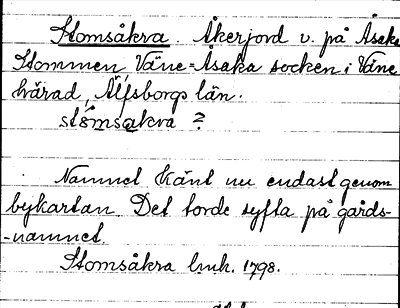 Stomsåkra. Åkerjord v. på Åsaka
Stommen Väne-Åsaka socken i Väne
härad, Älfsborgs län.
stómsakra ?
Namnet känt nu endast genom
bykartan. Det torde syfta på gårds-
-namnet.
Stomsåkra lmk. 1798.